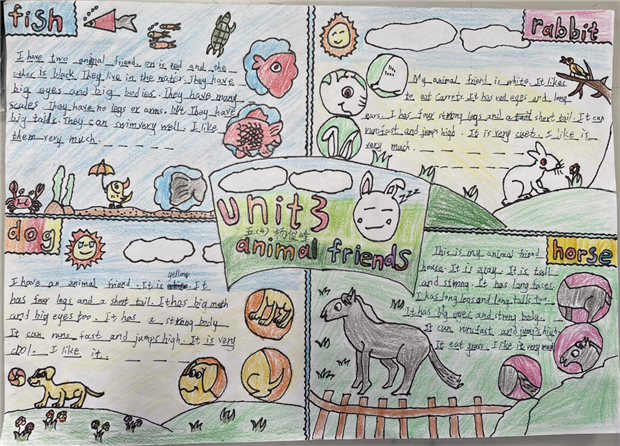 fish
I have two animal friend. en is red and the
other is black. They live in the water. They have
big eyes and big bodies. They have many
scales. They have no legs or arms. bpt They have
big tails. They can swim very well. I like
them very much.
rabbit
My animal friend is white. It likes
to eat carrots. It has red eyes and long
ears. I has four strong legs and a short tail. It can
run fast and jump high. It is very cuet. I like is
very much.
unit3
五(4)
animal friends
dog
I have an animal friend. It is yellow. It
has four legs and a short tail. It has big mouth
and big eyes too. It has a strong body.
It can runs fast and jumps high. It is very
cool. I like it.
horse
This is my animal friend
house. It is gray. It is tall
and strong. It has long faces.
I has long legs and long tails too.
It has big eyes and strong body.
It can run fast and jumps high.
It eat grass. I like it very much